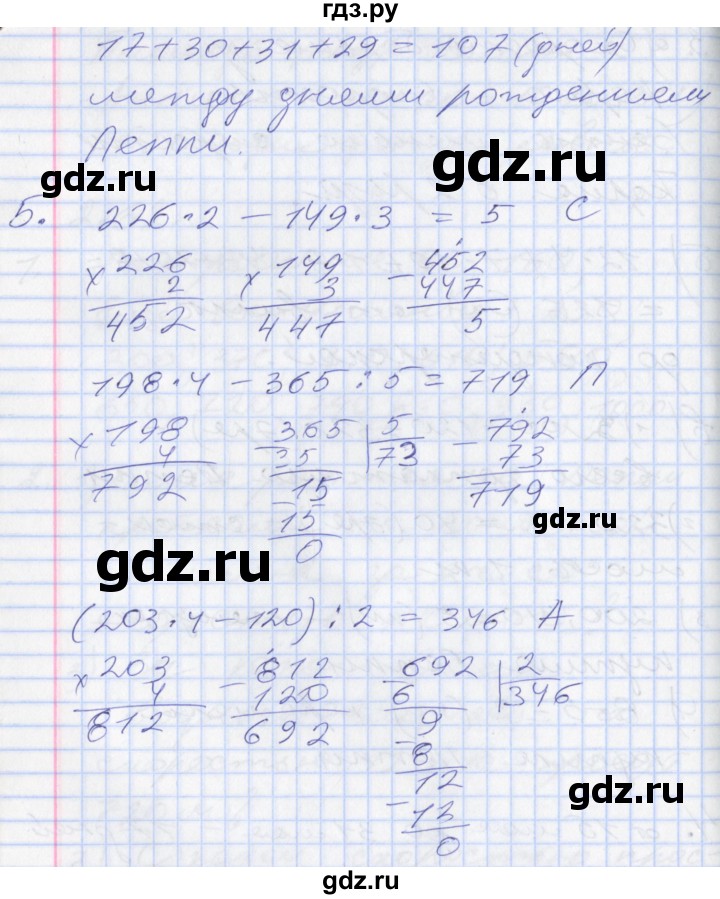 гдз.ру
17+30+31+29 = 107 (дней)
между днями рождениями
Леппи.
gdz.ru
gdz.ru
5. 226·2 - 149·3 = 5 С
× 226 × 149 - 452
2 3 447
452 447 5
198·4 - 365 : 5 = 719 П
× 198 - 365 5 - 792
4 35 73 73
792 15 719
- 15
0
gdz.ru
gdz.ru
(203·4 - 120) : 2 = 346 А
× 203 - 812 - 692 2
4 120 6 346
812 692 9
- 8
12
- 12
0
gdz.ru
gdz.ru
gdz.ru